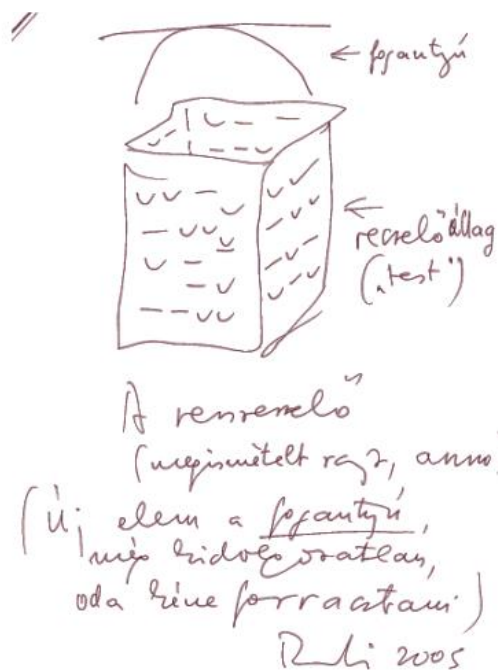 ← fogantyú
← reszelőállag
("test")
A
(megismételt rajz, anno)
(Új elem a fogantyú,
még kidolgozatlan,
oda kéne forrasztani)
2005